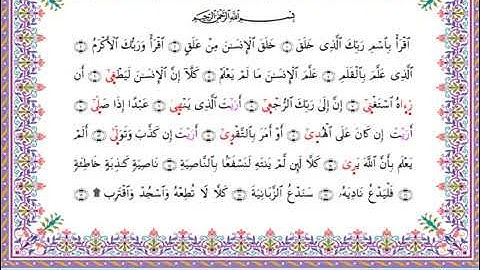 بِسْمِ ٱللَّهِ ٱلرَّحْمَٰنِ ٱلرَّحِيمِ
ٱقْرَأْ بِٱسْمِ رَبِّكَ ٱلَّذِى خَلَقَ ۝ خَلَقَ ٱلْإِنسَٰنَ مِنْ عَلَقٍ ۝ ٱقْرَأْ وَرَبُّكَ ٱلْأَكْرَمُ ۝
ٱلَّذِى عَلَّمَ بِٱلْقَلَمِ ۝ عَلَّمَ ٱلْإِنسَٰنَ مَا لَمْ يَعْلَمْ ۝ كَلَّآ إِنَّ ٱلْإِنسَٰنَ لَيَطْغَىٰٓ ۝ أَن
رَءَاهُ ٱسْتَغْنَىٰٓ ۝ إِنَّ إِلَىٰ رَبِّكَ ٱلرُّجْعَىٰٓ ۝ أَرَيْتَ ٱلَّذِى يَنْهَىٰ ۝ عَبْدًا إِذَا صَلَّىٰٓ ۝
أَرَيْتَ إِن كَانَ عَلَى ٱلْهُدَىٰٓ ۝ أَوْ أَمَرَ بِٱلتَّقْوَىٰٓ ۝ أَرَيْتَ إِن كَذَّبَ وَتَوَلَّىٰٓ ۝ أَلَمْ
يَعْلَم بِأَنَّ ٱللَّهَ يَرَىٰ ۝ كَلَّا لَئِن لَّمْ يَنتَهِ لَنَسْفَعًۢا بِٱلنَّاصِيَةِ ۝ نَاصِيَةٍ كَٰذِبَةٍ خَاطِئَةٍ
۝ فَلْيَدْعُ نَادِيَهُۥ ۝ سَنَدْعُ ٱلزَّبَانِيَةَ ۝ كَلَّا لَا تُطِعْهُ وَٱسْجُدْ وَٱقْتَرِب ۩ ۝